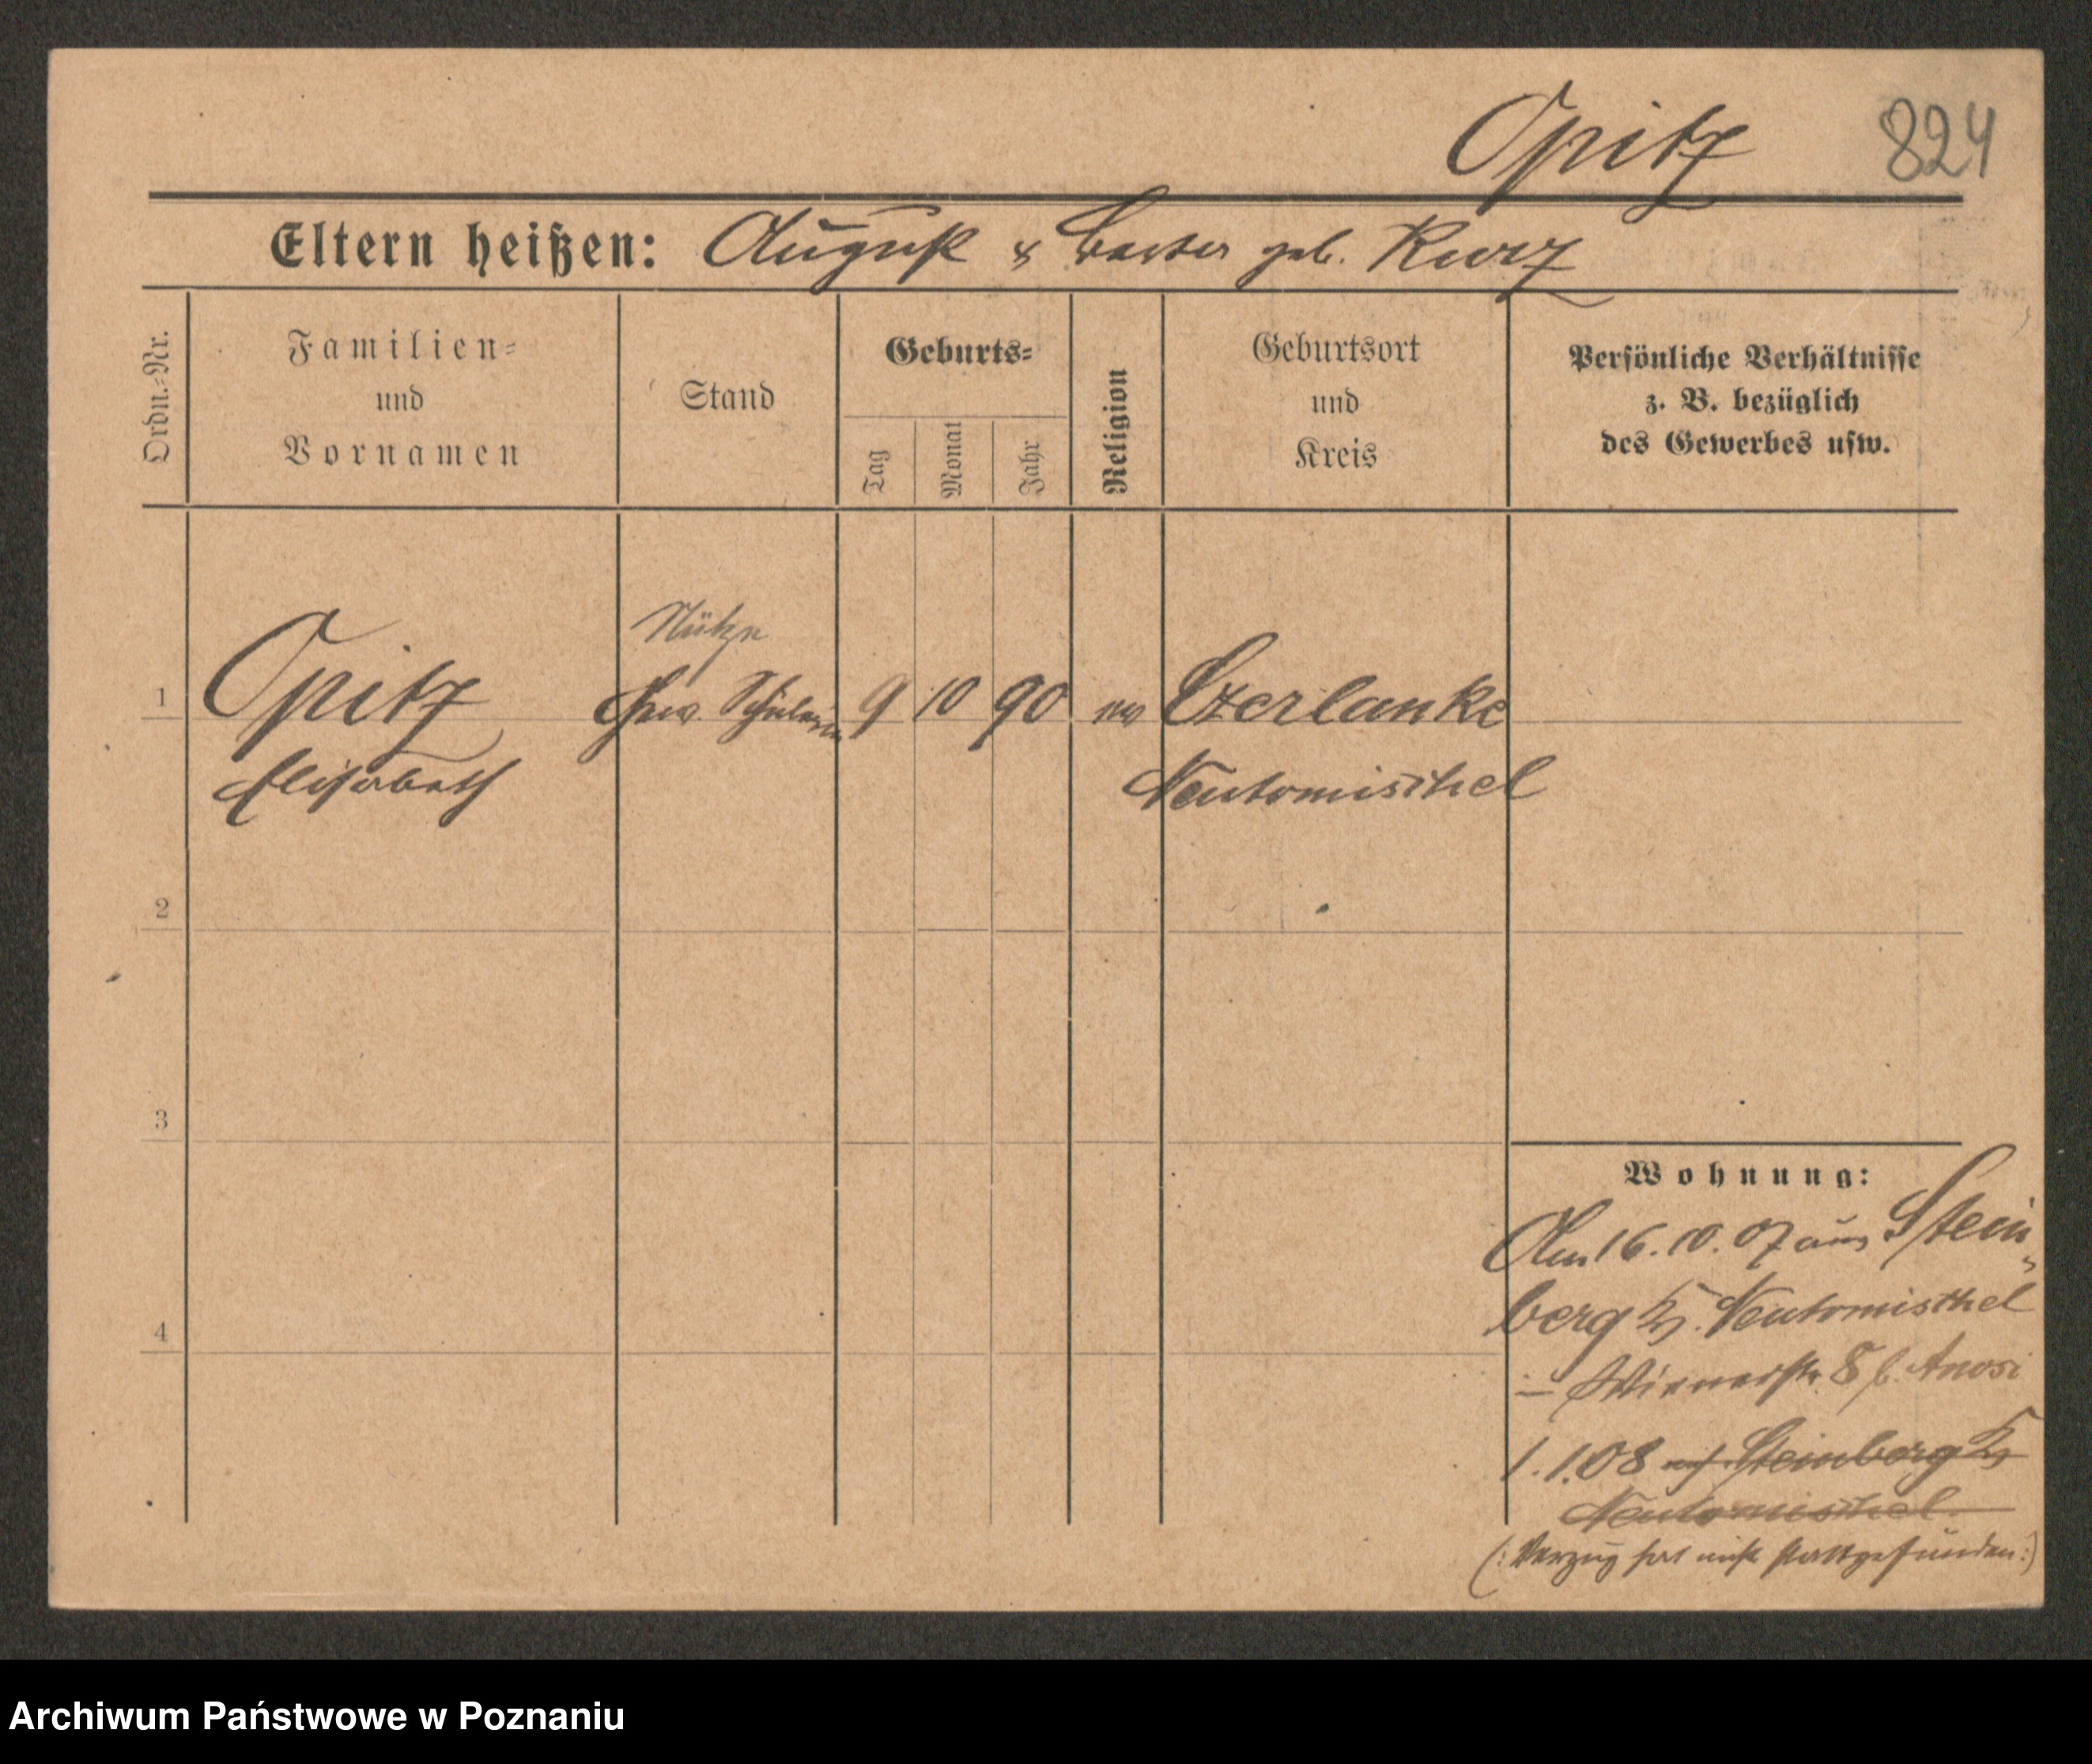 Opitz 824
Eltern heißen: August & geb. Kurz
Ordn.-Nr.
Familien- und Vornamen
Stand
Geburts-
Tag
Monat
Jahr
Religion
Geburtsort und Kreis
Persönliche Verhältnisse z. B. bezüglich des Gewerbes usw.
1 Opitz Schülerin 9 10 90 ev Czerlanke
Elisabeth Neutomischel
2
3
4
Wohnung:
Am 16.10.07 aus Stein-
berg Kr. Neutomischel
- Wienerstr. 8 b.
1.1.08 nach Steinberg Kr
Neutomischel
(: Verzug hat nicht stattgefunden :)
Archiwum Państwowe w Poznaniu